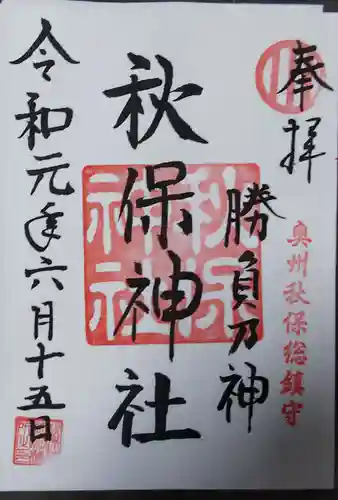 奉拝
奥州秋保総鎮守
勝負乃神
秋保神社
令和元年六月十五日
秋保神社